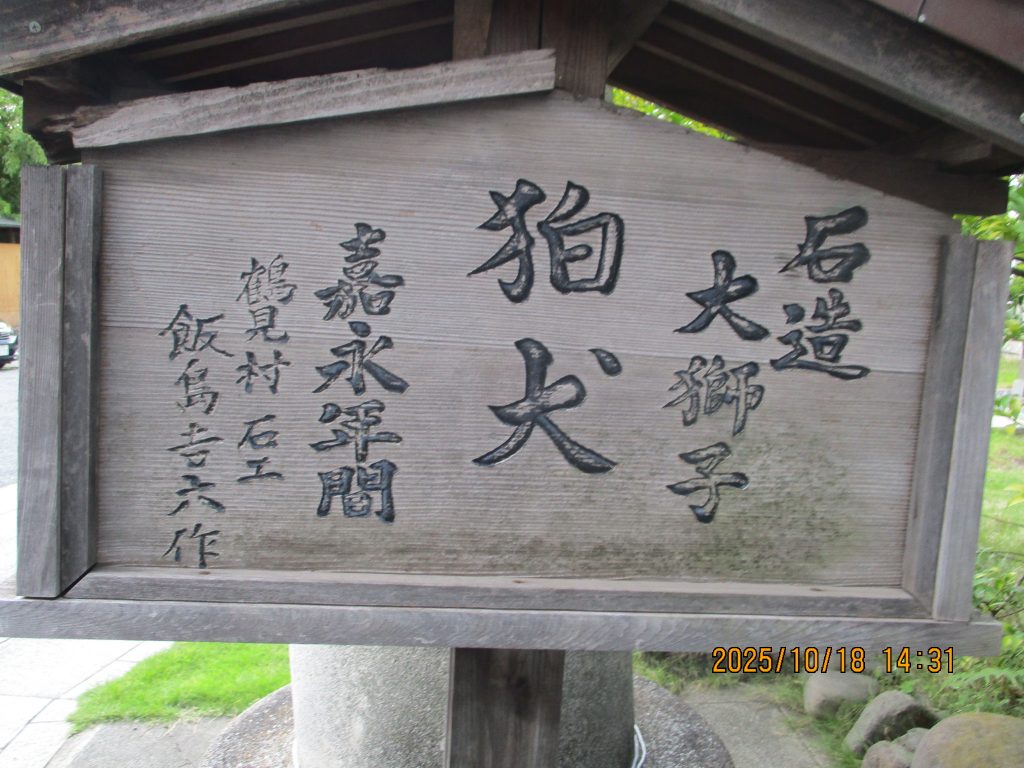 石造
大獅子
狛犬
嘉永年間
鶴見村 石工
飯島吉六作
2025/10/18 14:31